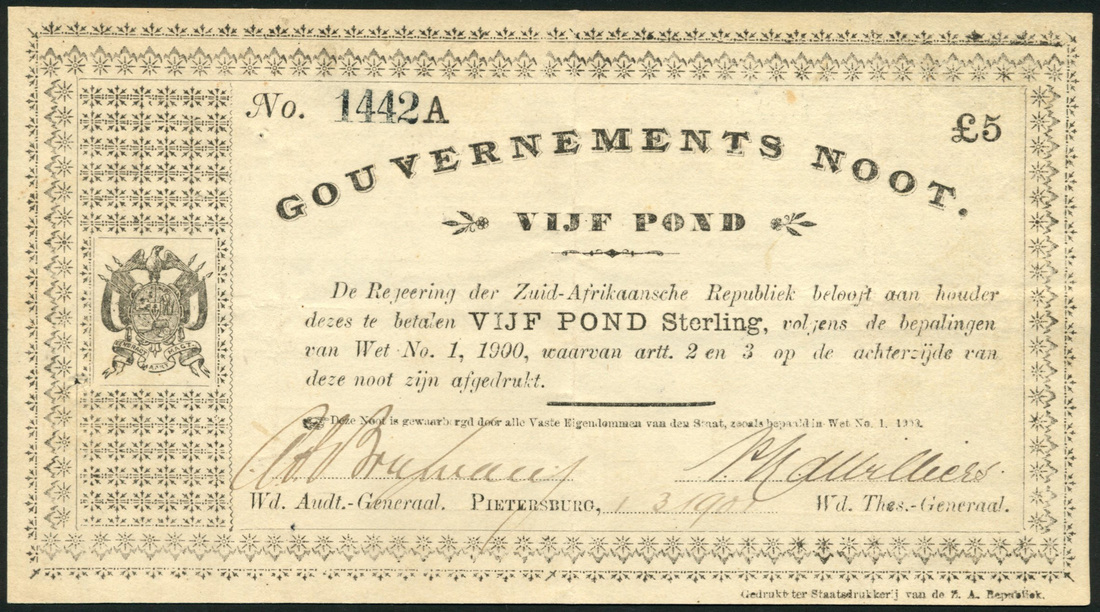 No. 1442A
£5
GOUVERNEMENTS NOOT.
VIJF POND
De Regeering der Zuid-Afrikaansche Republiek belooft aan houder
dezes te betalen VIJF POND Sterling, volgens de bepalingen
van Wet No. 1, 1900, waarvan artt. 2 en 3 op de achterzijde van
deze noot zijn afgedrukt.
Deze Noot is gewaarborgd door alle Vaste Eigendommen van den Staat, zooals bepaald in Wet No. 1, 1900.
Wd. Audt.-Generaal. PIETERSBURG, 1 3 1901 Wd. Thes.-Generaal.
Gedrukt ter Staatsdrukkerij van de Z. A. Republiek.